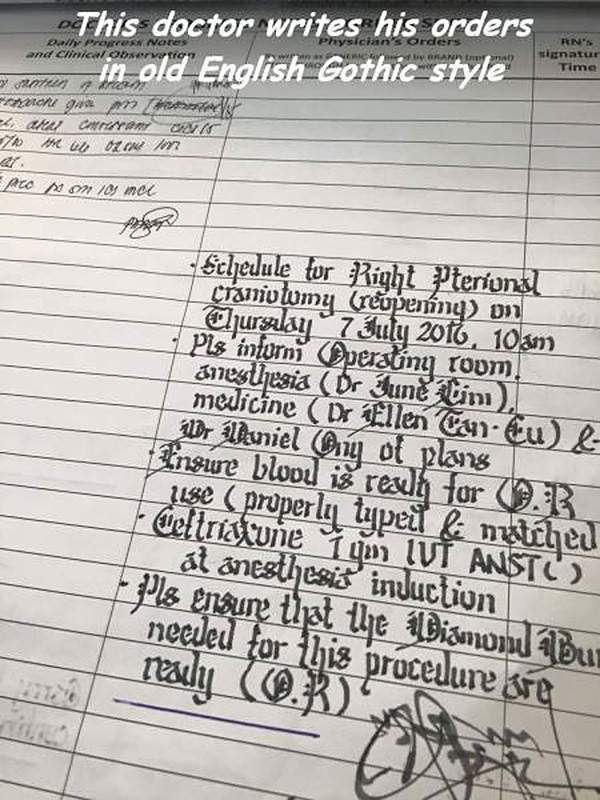 This doctor writes his orders
in old English Gothic style
Daily Progress Notes
and Clinical Observation
Physician's Orders
RN's
signatur
Time
· Schedule for Right Pterional
craniotomy (reopening) on
Thursday 7 July 2016, 10am
· Pls inform Operating room,
anesthesia (Dr June Lim),
medicine (Dr Ellen Tan-Eu) &
Dr Daniel Ong of plans
· Ensure blood is ready for O.R
use (properly typed & matched
· Ceftriaxone 1gm IVT ANST( )
at anesthesia induction
· Pls ensure that the Diamond Bur
needed for this procedure are
ready (O.R)